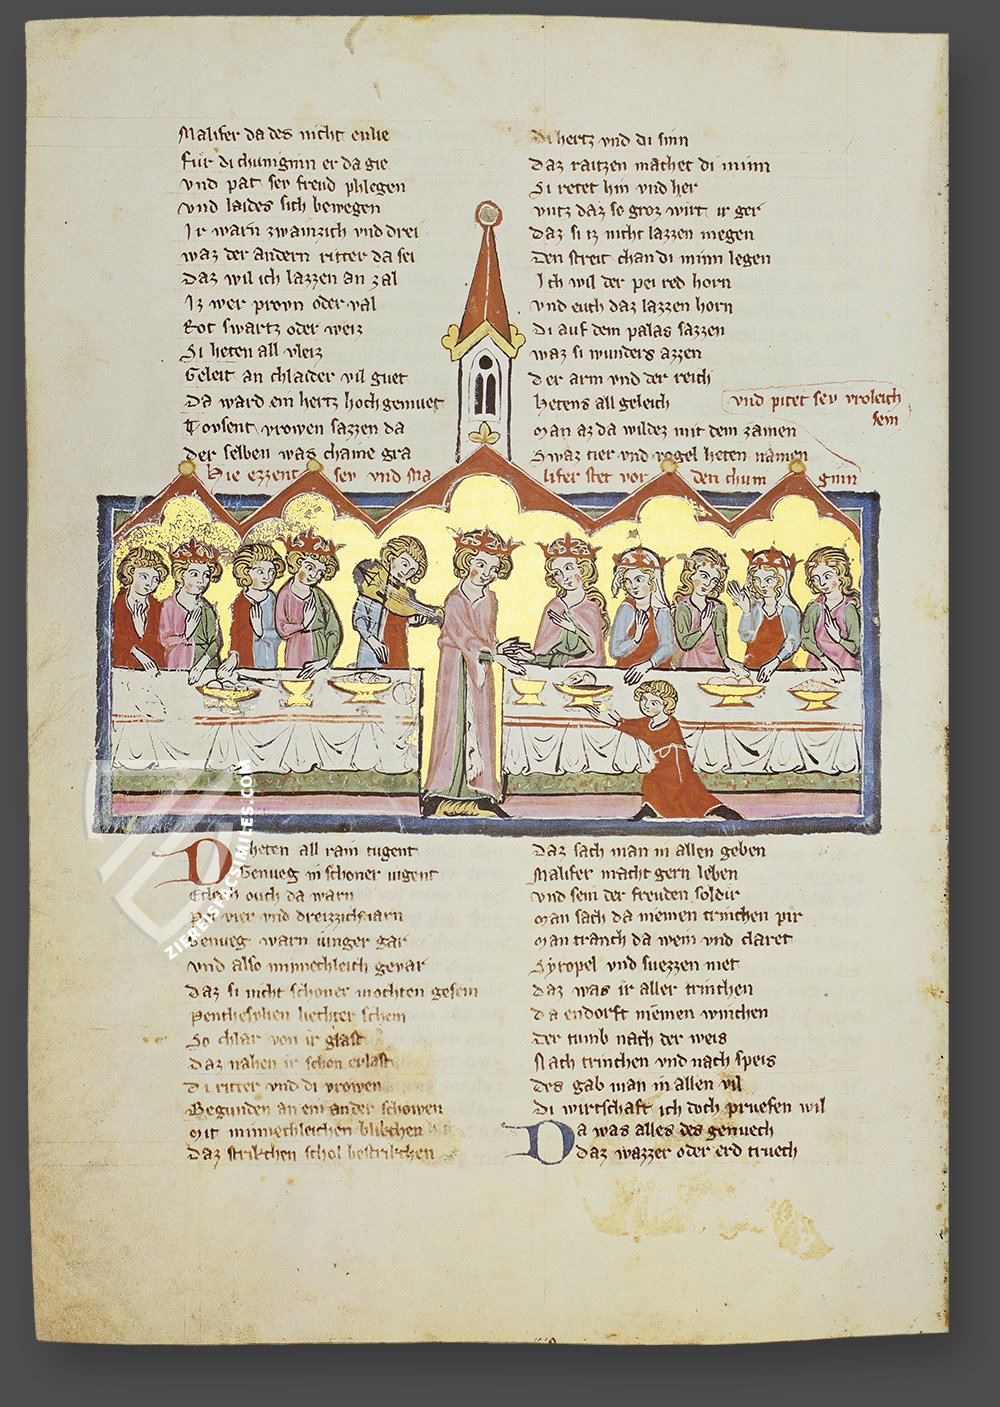 Malifer da des nicht enlie
Fur di chuniginn er da gie
Vnd pat sev freud phlegen
Vnd laides sich bewegen
Ir warn zwainzich vnd drei
Waz der andern ritter da sei
Daz wil ich lazzen an zal
Iz wer provn oder val
Rot swartz oder weiz
Si heten all vleiz
Geleit an chlaider vil guet
Da ward ein hertz hoch gemuet
Tovsent vrowen sazzen da
Der selben was chaine gra
Di hertz vnd di sinn
Daz raitzen machet di minn
Si retet hin vnd her
Vntz daz so groz wirt ir ger
Daz si iz nicht lazzen megen
Den streit chan di minn legen
Ich wil der pei red horn
Vnd euch daz lazzen horn
Di auf dem palas sazzen
Waz si wunders azzen
Der arm vnd der reich
Hetens all geleich
Man az da wildez mit dem zamen
Swaz tier vnd vogel heten namen
vnd pitet sev vroleich
sein
Hie ezzent sev vnd ma
lifer stet vor den chun
ginn
Di heten all rain tugent
Genueg in schoner iugent
Etleich ouch da warn
Pei vier vnd dreizzich iarn
Genueg warn iunger gar
Vnd also minnechleich gevar
Daz si nicht schoner mochten gesein
Penthesylien liechter schein
So chlar von ir glast
Daz nahen ir schon erlast
Di ritter vnd di vrowen
Begunden an ein ander schowen
Mit minnechleichen blikchen
Daz strikchen schol bestrikchen
Daz sach man in allen geben
Malifer macht gern leben
Vnd sein der freuden soldir
Man sach da niemen trinchen pir
Man tranch da wein vnd claret
Syropel vnd suezzen met
Daz was ir aller trinchen
Da endorft niemen winchen
Der tumb nach der weis
Nach trinchen vnd nach speis
Des gab man in allen vil
Di wirtschaft ich doch pruefen wil
Da was alles des genuech
Daz wazzer oder erd truech
ZIEREISFACSIMILES.COM